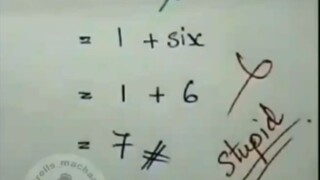 = 1 + six
= 1 + 6
= 7 #
stupid